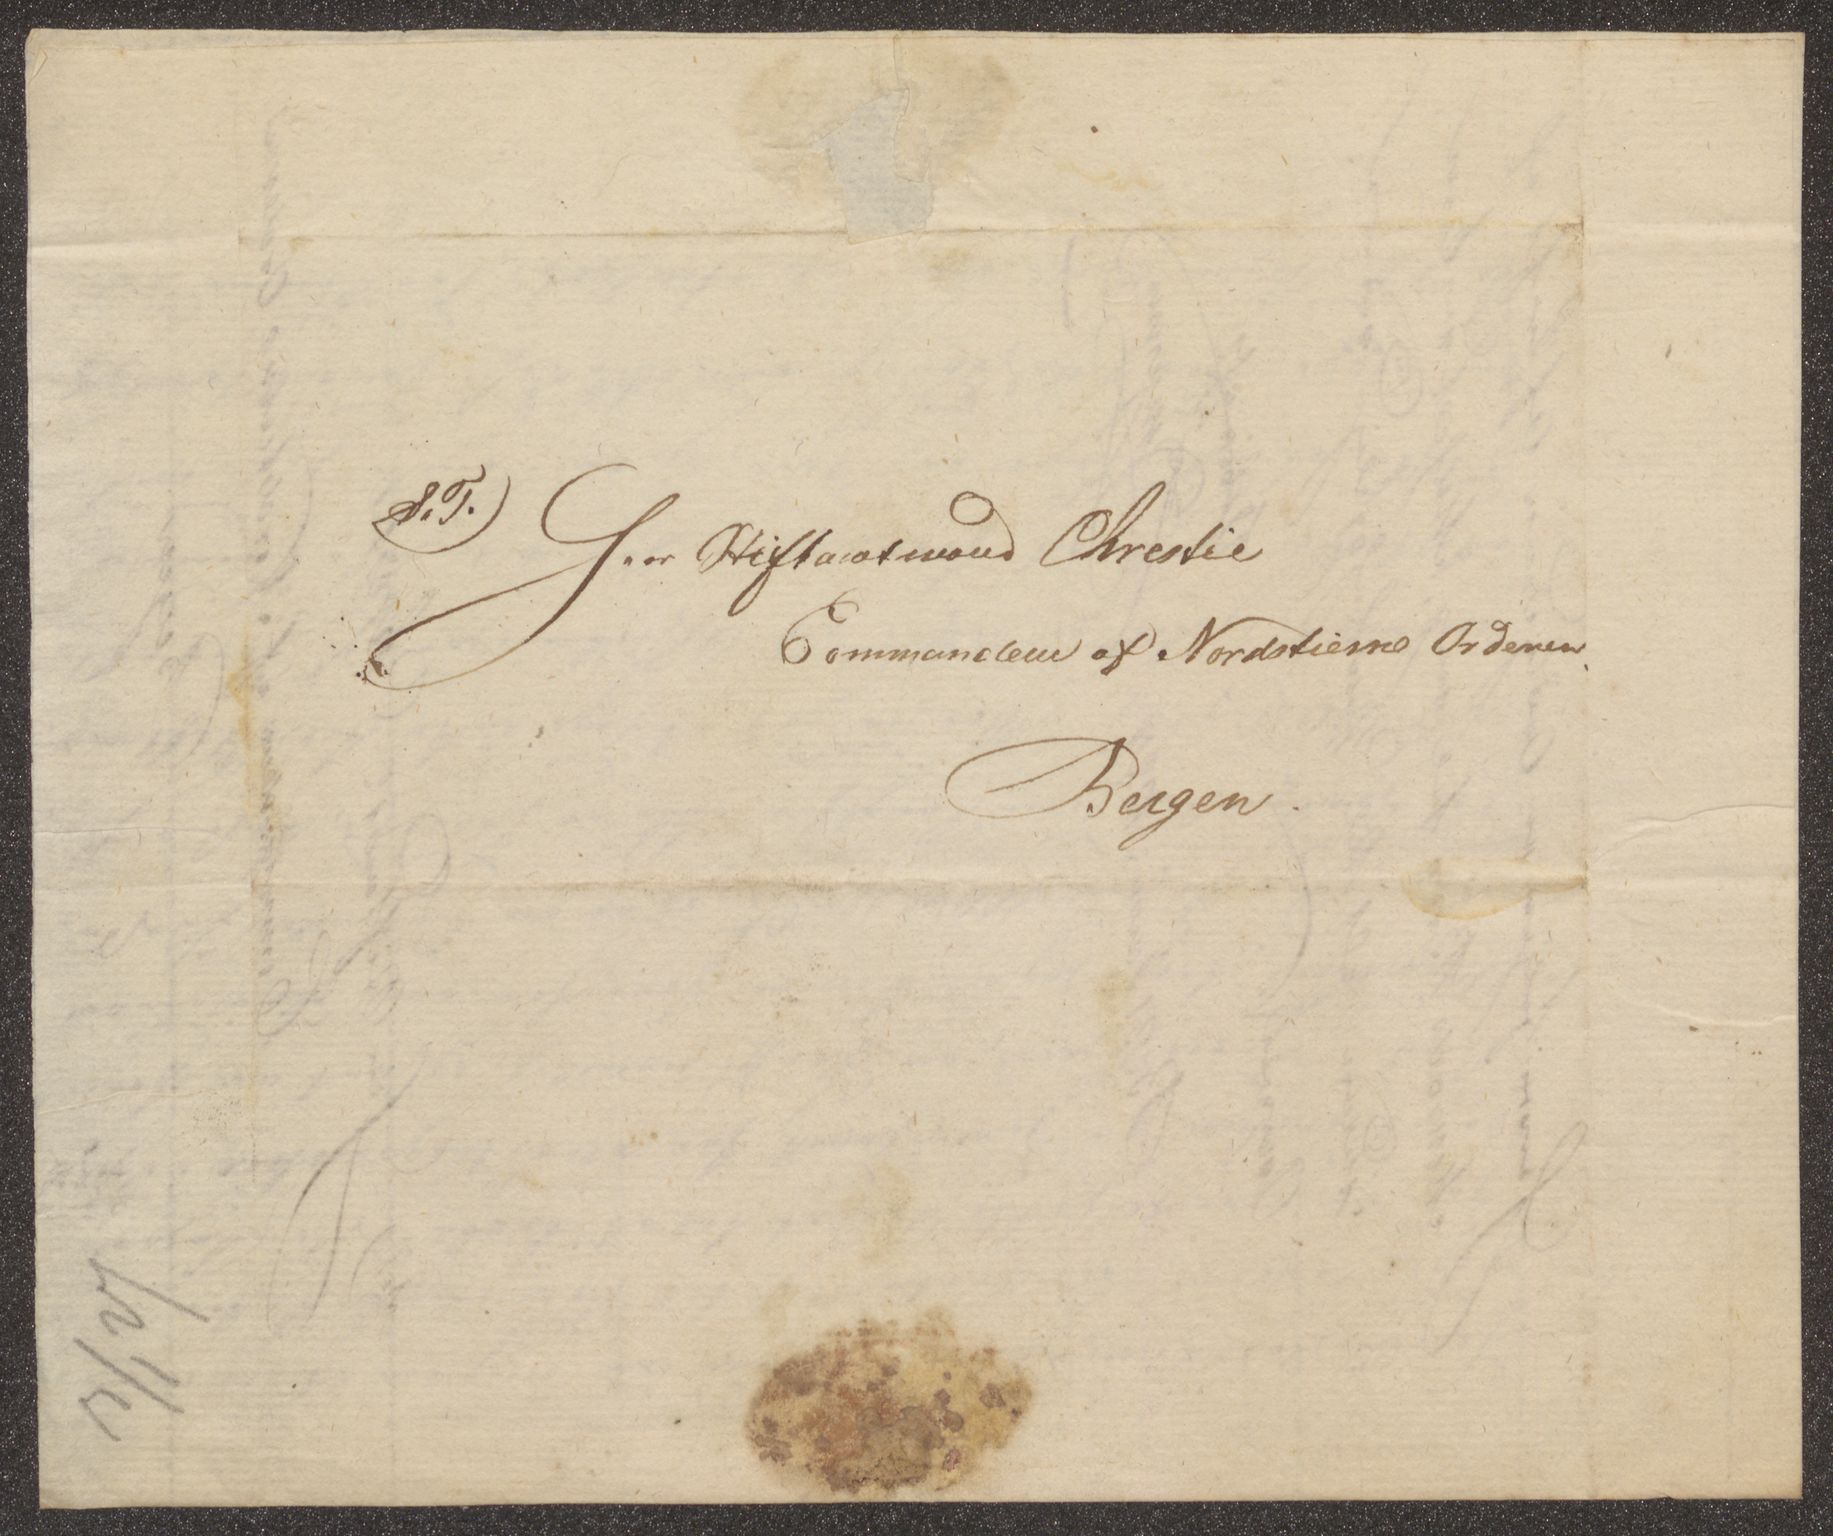 S.T.)
Herr Stiftamtmand Christie
Commandeur af Nordstierne Ordenen.
Bergen.